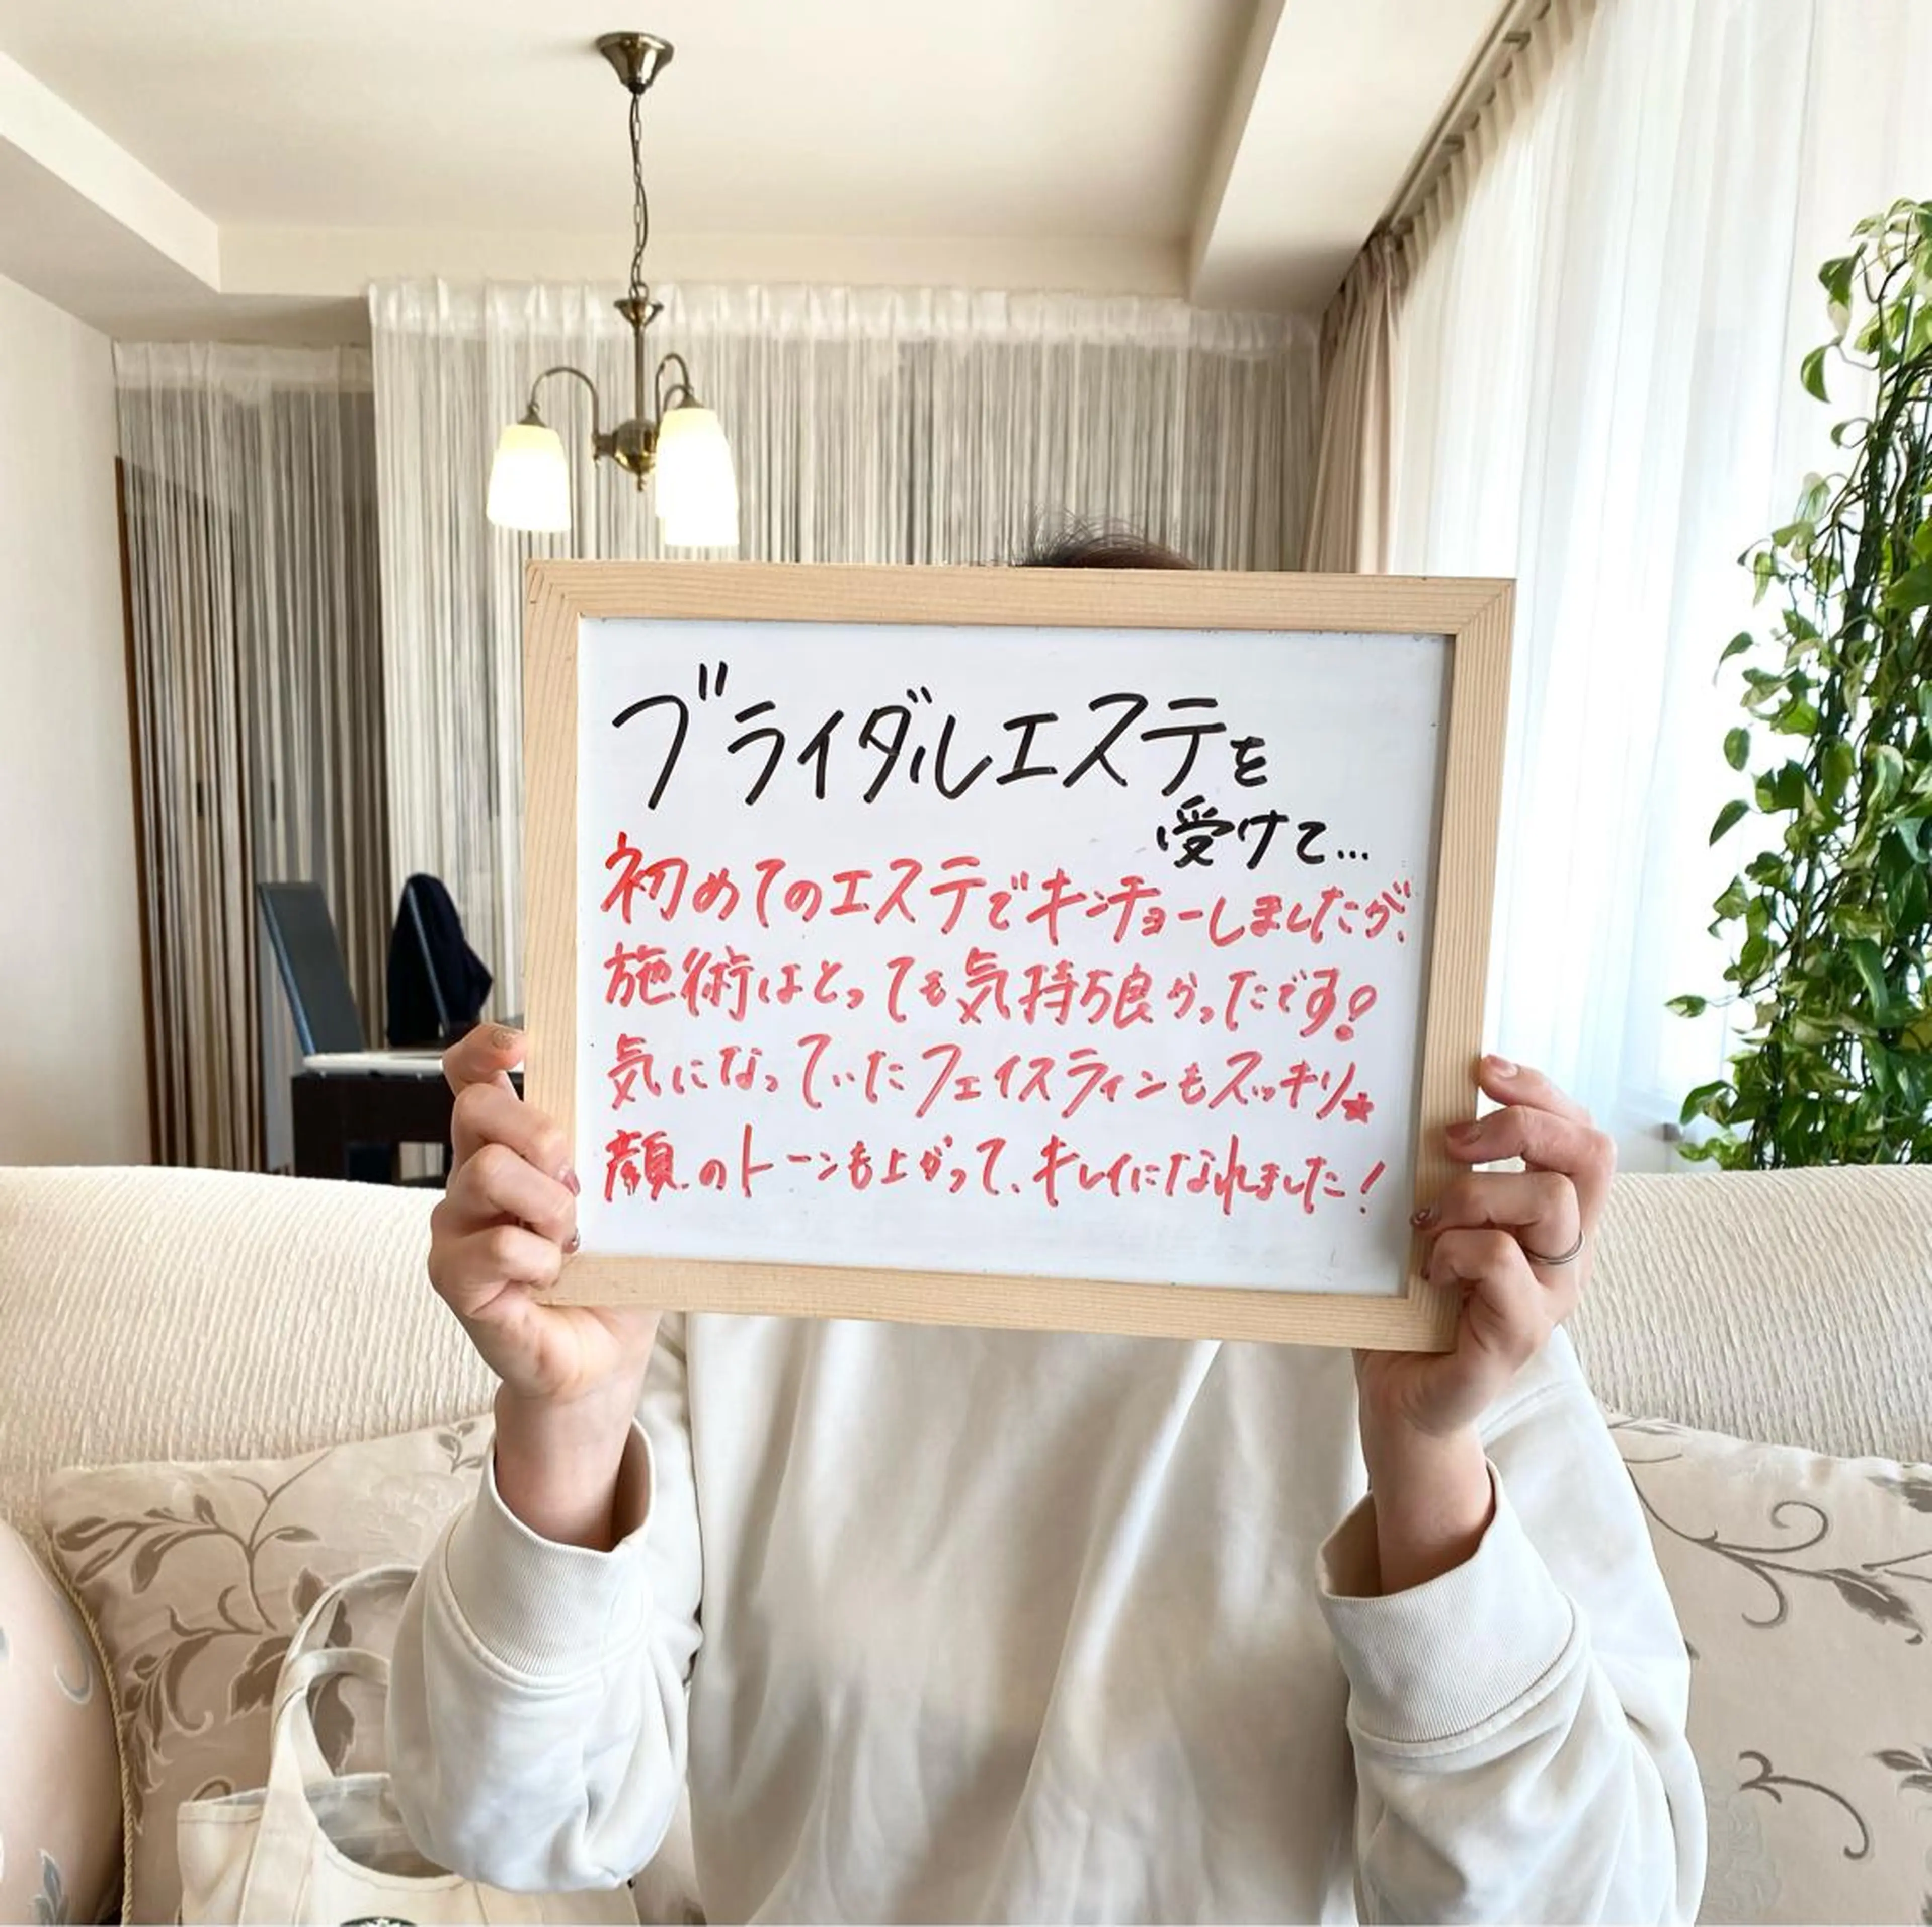 ブライダルエステを
受けて…
初めてのエステでキンチョーしましたが、
施術はとっても気持ち良かったです!
気になっていたフェイスラインもスッキリ★
顔のトーンも上がって、キレイになれました!